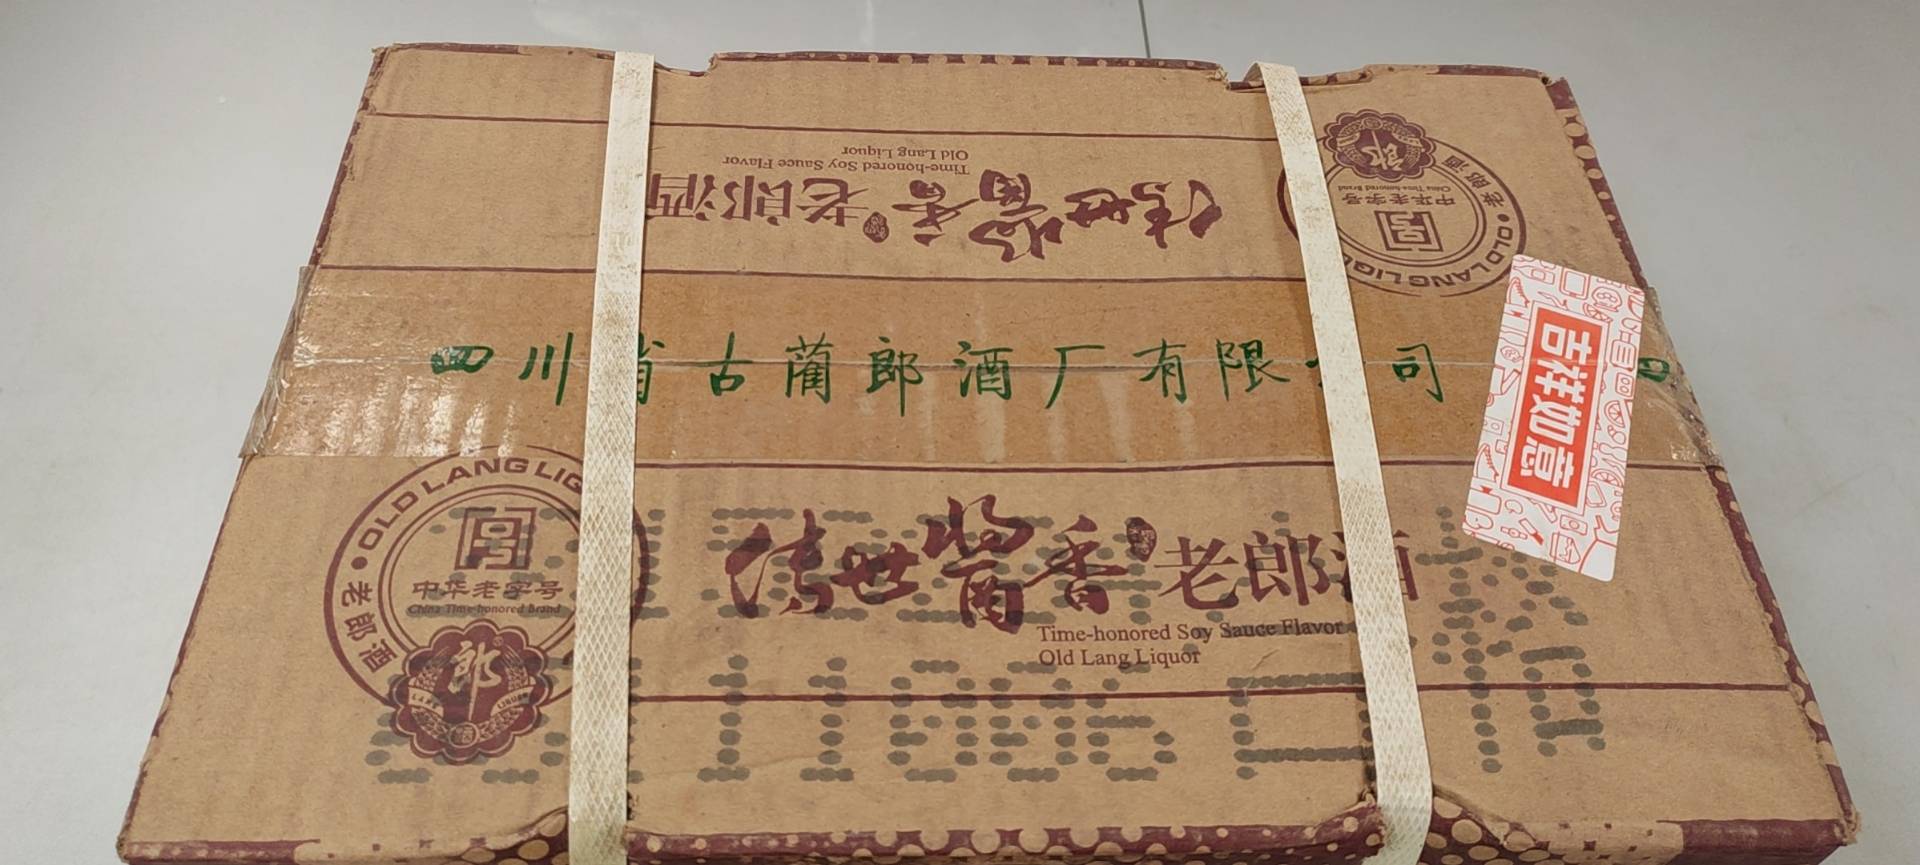 Old Lang Liquor
Time-honored Soy Sauce Flavor
传世酱香老郎酒
中华老字号
China Time-honored Brand
郎
老郎酒
OLD LANG LIQU
四川省古蔺郎酒厂有限公司
吉祥如意
OLD LANG LIQ
老郎酒
中华老字号
China Time-honored Brand
郎
传世酱香老郎酒
Time-honored Soy Sauce Flavor
Old Lang Liquor